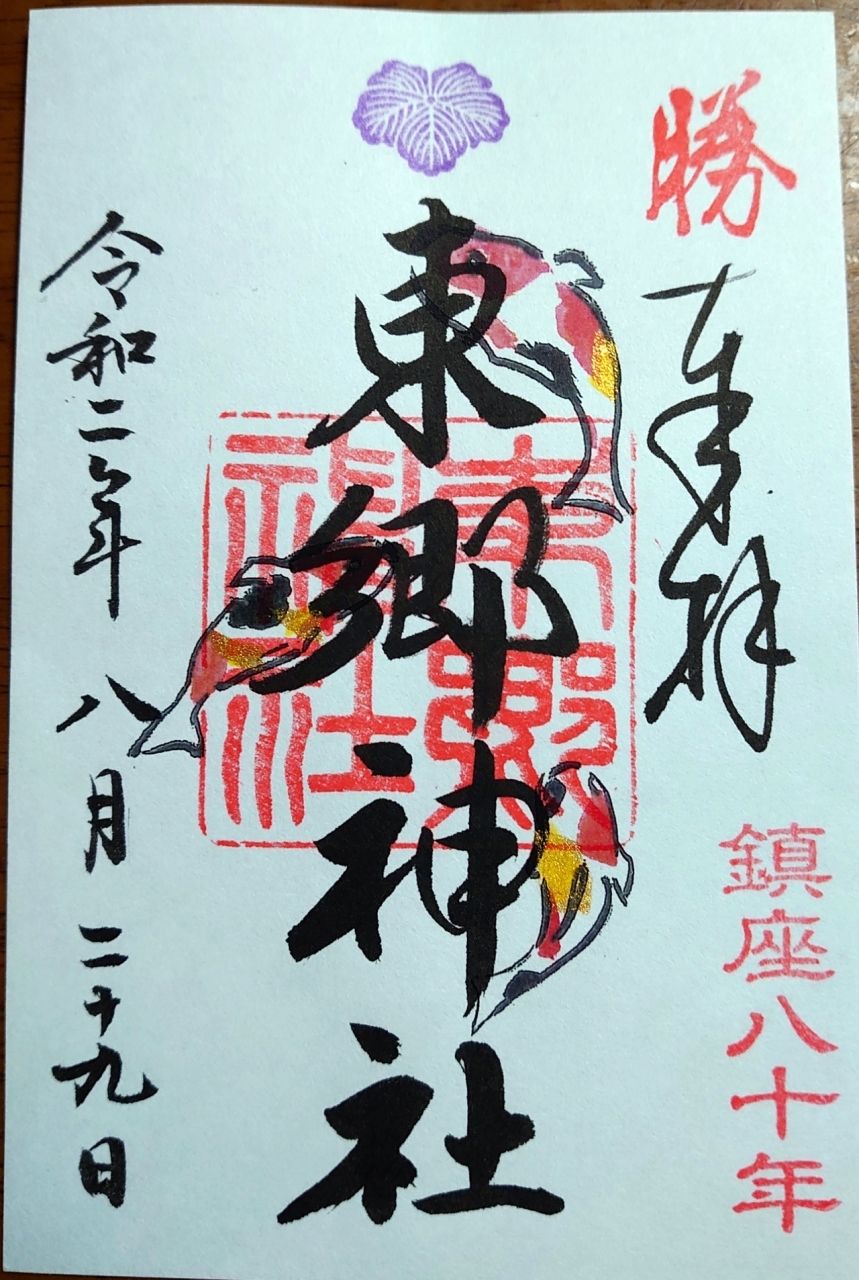 勝
奉拝
鎮座八十年
東郷神社
東郷
神社
令和二年 八月 二十九日